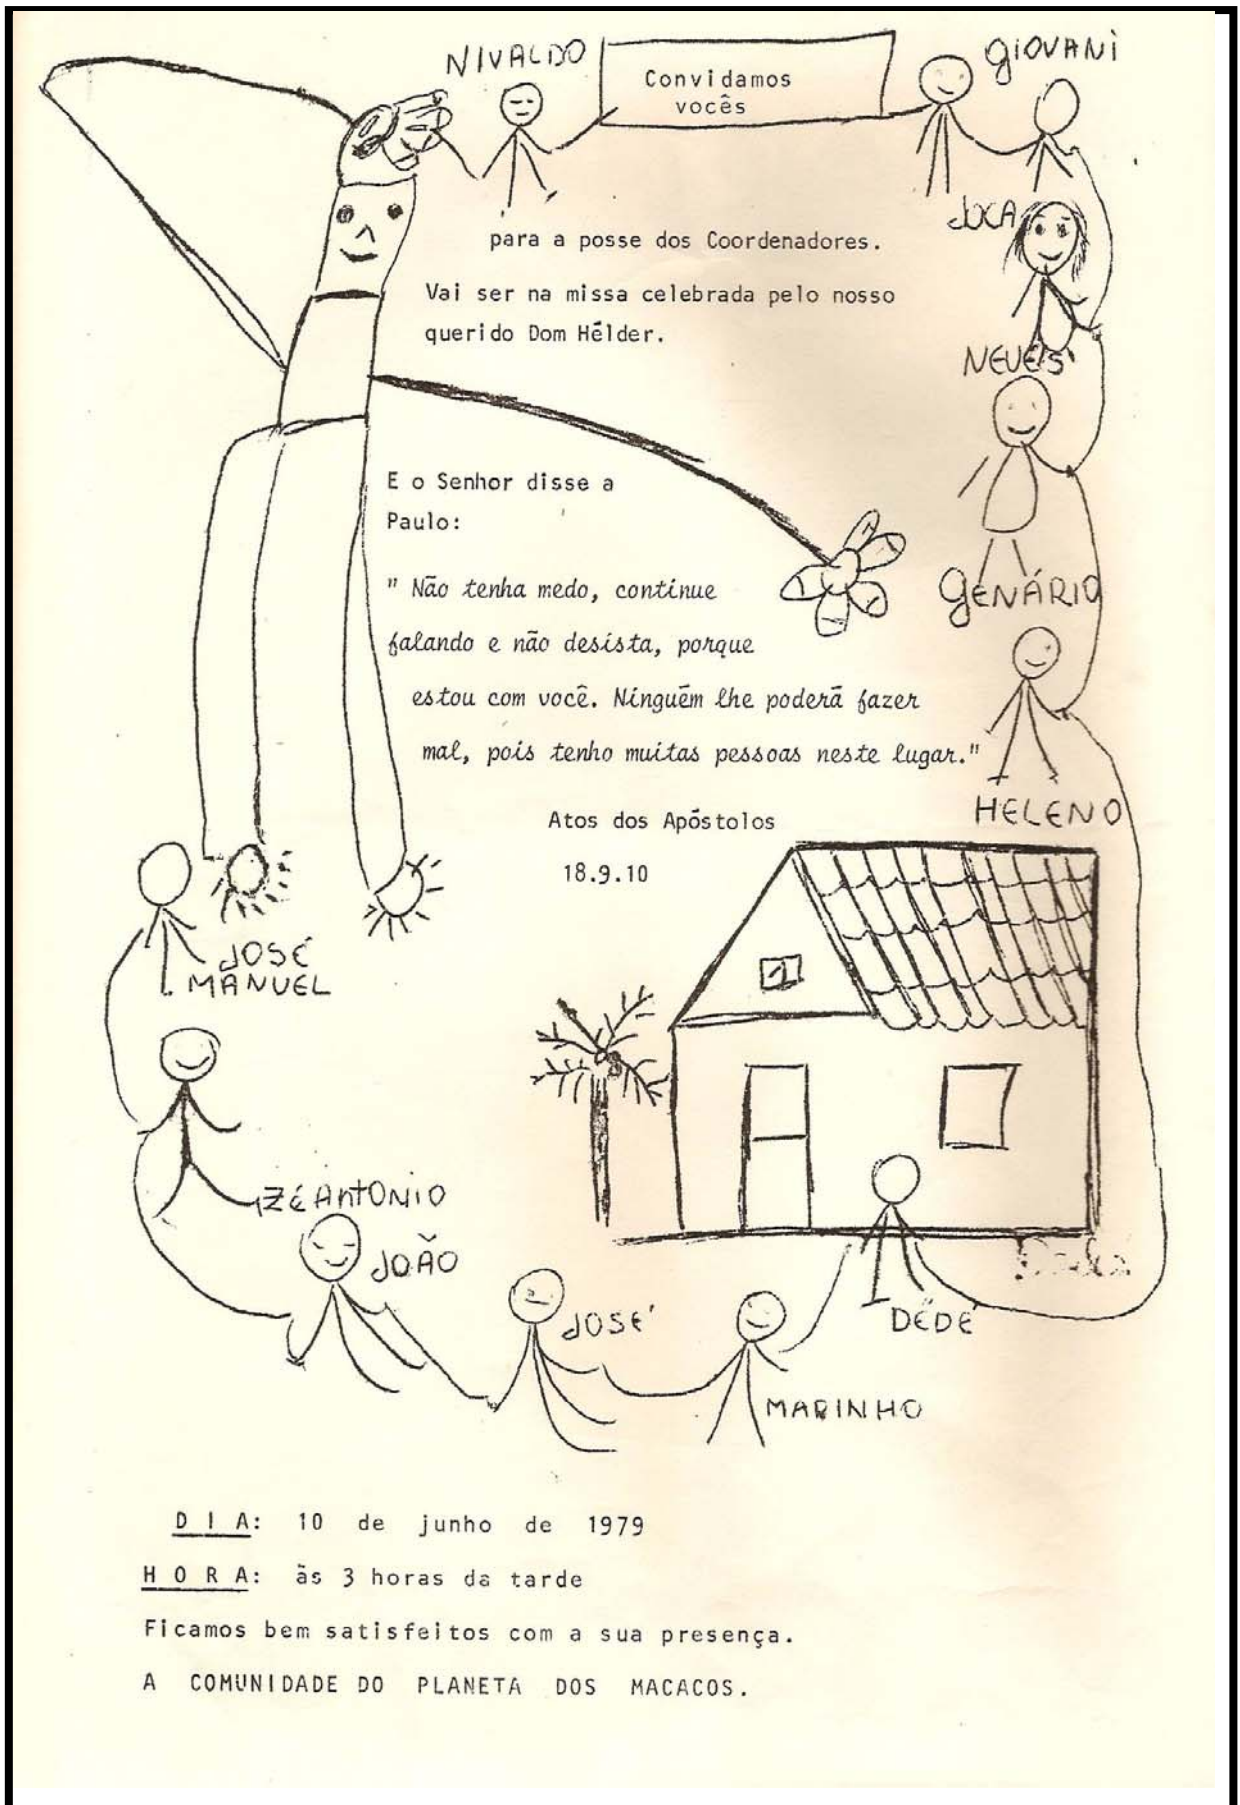 NIVALDO
Convidamos
vocês
GIOVANI
JOCA
para a posse dos Coordenadores.
Vai ser na missa celebrada pelo nosso
querido Dom Hélder.
NEVES
E o Senhor disse a
Paulo:
" Não tenha medo, continue
falando e não desista, porque
estou com você. Ninguém lhe poderá fazer
mal, pois tenho muitas pessoas neste lugar."
GENÁRIO
Atos dos Apóstolos
18.9.10
HELENO
JOSÉ
MANUEL
ZÉ ANTONIO
JOÃO
JOSÉ
DÉDÉ
MARINHO
DIA: 10 de junho de 1979
HORA: às 3 horas da tarde
Ficamos bem satisfeitos com a sua presença.
A COMUNIDADE DO PLANETA DOS MACACOS.